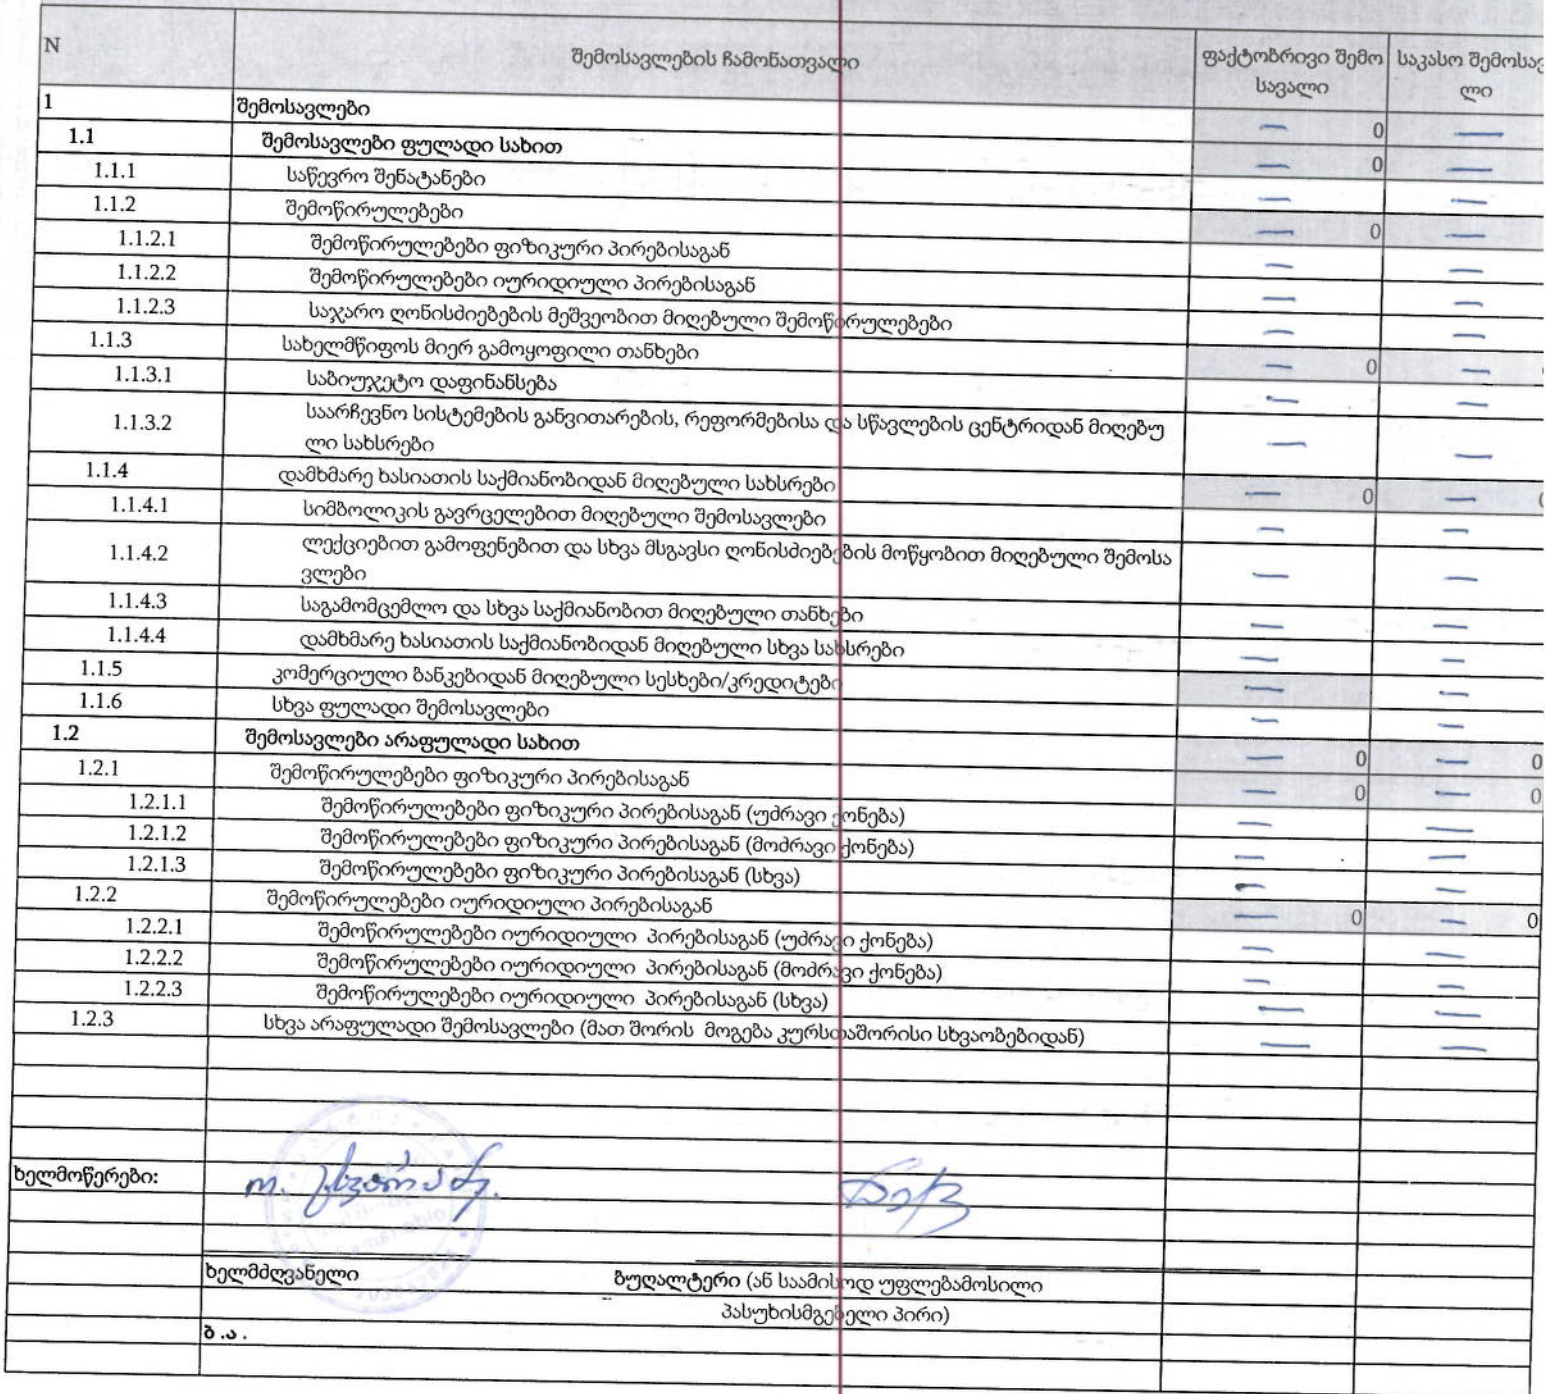 N შემოსავლების ჩამონათვალი ფაქტობრივი შემო საკასო შემოსავ
სავალი ლი
1 შემოსავლები — 0 —
1.1 შემოსავლები ფულადი სახით — 0 —
1.1.1 საწევრო შენატანები — —
1.1.2 შემოწირულებები — 0 —
1.1.2.1 შემოწირულებები ფიზიკური პირებისაგან — —
1.1.2.2 შემოწირულებები იურიდიული პირებისაგან — —
1.1.2.3 საჯარო ღონისძიებების მეშვეობით მიღებული შემოწირულებები — —
1.1.3 სახელმწიფოს მიერ გამოყოფილი თანხები — 0 —
1.1.3.1 საბიუჯეტო დაფინანსება — —
1.1.3.2 საარჩევნო სისტემების განვითარების, რეფორმებისა და სწავლების ცენტრიდან მიღებუ — —
ლი სახსრები
1.1.4 დამხმარე ხასიათის საქმიანობიდან მიღებული სახსრები — 0 — 0
1.1.4.1 სიმბოლიკის გავრცელებით მიღებული შემოსავლები — —
1.1.4.2 ლექციებით გამოფენებით და სხვა მსგავსი ღონისძიებების მოწყობით მიღებული შემოსა — —
ვლები
1.1.4.3 საგამომცემლო და სხვა საქმიანობით მიღებული თანხები — —
1.1.4.4 დამხმარე ხასიათის საქმიანობიდან მიღებული სხვა სახსრები — —
1.1.5 კომერციული ბანკებიდან მიღებული სესხები/კრედიტები — —
1.1.6 სხვა ფულადი შემოსავლები — —
1.2 შემოსავლები არაფულადი სახით — 0 — 0
1.2.1 შემოწირულებები ფიზიკური პირებისაგან — 0 — 0
1.2.1.1 შემოწირულებები ფიზიკური პირებისაგან (უძრავი ქონება) — —
1.2.1.2 შემოწირულებები ფიზიკური პირებისაგან (მოძრავი ქონება) — —
1.2.1.3 შემოწირულებები ფიზიკური პირებისაგან (სხვა) — —
1.2.2 შემოწირულებები იურიდიული პირებისაგან — 0 — 0
1.2.2.1 შემოწირულებები იურიდიული პირებისაგან (უძრავი ქონება) — —
1.2.2.2 შემოწირულებები იურიდიული პირებისაგან (მოძრავი ქონება) — —
1.2.2.3 შემოწირულებები იურიდიული პირებისაგან (სხვა) — —
1.2.3 სხვა არაფულადი შემოსავლები (მათ შორის მოგება კურსთაშორისი სხვაობებიდან) — —
ხელმოწერები:
ხელმძღვანელი ბუღალტერი (ან საამისოდ უფლებამოსილი
პასუხისმგებელი პირი)
ბ.ა.